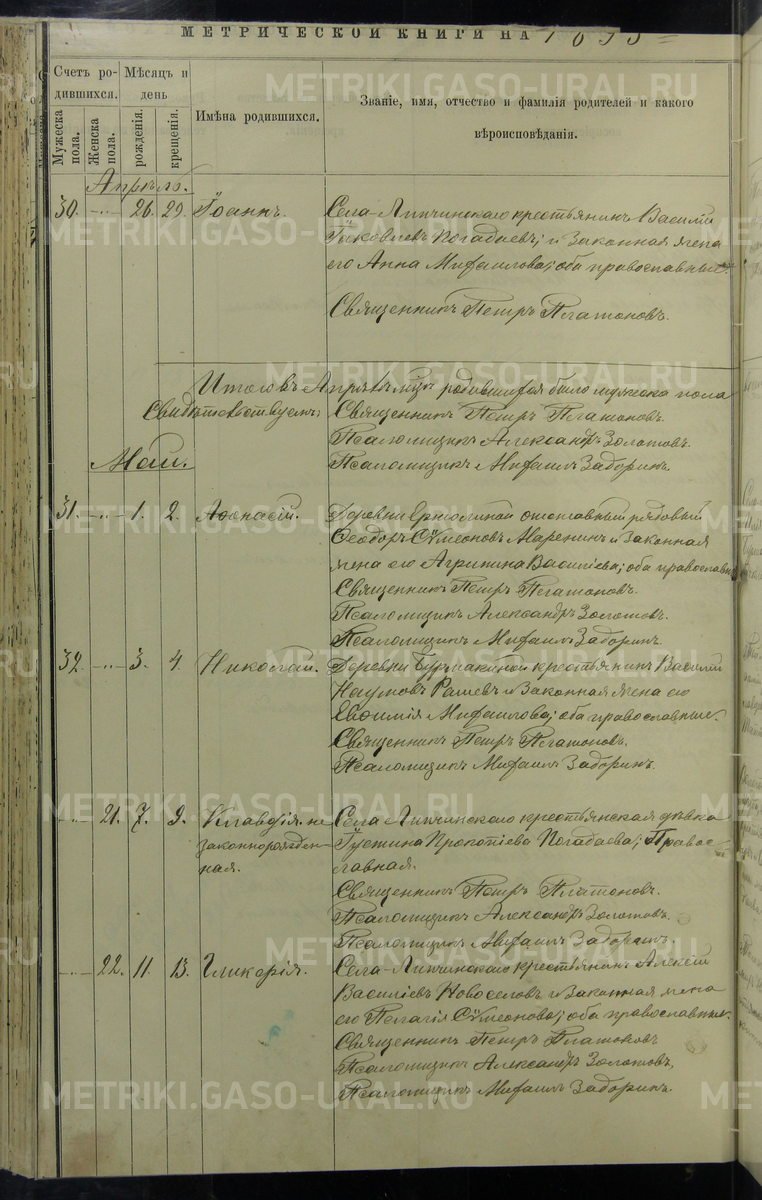 МЕТРИЧЕСКОЙ КНИГИ НА 1895
Счетъ ро-
дившихся.
Мѣсяцъ и
день
Мужеска
пола.
Женска
пола.
рожденія.
крещенія.
Имѣна родившихся.
Званіе, имя, отчество и фамилія родителей и какого
вѣроисповѣданія.
Апрѣль.
30. -"- 26. 29. Іоаннъ. Села Липчинскаго крестьянинъ Василій
Іаковлевъ Погадаевъ; и Законная жена
его Анна Михаилова; оба православные.
Священникъ Петръ Платоновъ.
Итого въ Апрѣлѣ м҃цѣ родившихся было мужска пола
Свидѣтельствуемъ: Священникъ Петръ Платоновъ.
Псаломщикъ Александръ Золотовъ.
Май. Псаломщикъ Михаилъ Задоринъ.
31. -"- 1. 2. Аѳонасій. Деревни Ермолиной отставный рядовый
Ѳеодоръ Сѷмеоновъ Маренинъ и Законная
жена его Агрипина Василіева; оба православн
Священникъ Петръ Платоновъ.
Псаломщикъ Александръ Золотовъ.
Псаломщикъ Михаилъ Задоринъ.
32. -"- 3. 4. Николай. Деревни Бурмакиной крестьянинъ Василій
Наумовъ Рашевъ и Законная жена его
Евѳимія Михаилова; оба православные.
Священникъ Петръ Платоновъ.
Псаломщикъ Михаилъ Задоринъ.
-"- 21. 7. 9. Клавдія не- Села Липчинскаго крестьянская дѣвка
законнорожден- Іустина Прокопіева Погадаева; Право-
ная. славная.
Священникъ Петръ Платоновъ.
Псаломщикъ Александръ Золотовъ.
Псаломщикъ Михаилъ Задоринъ.
-"- 22. 11. 13. Гликерія. Села Липчинскаго крестьянинъ Алексій
Василіевъ Новоселовъ и Законная жена
его Пелагія Сѷмеонова; оба православные.
Священникъ Петръ Платоновъ
Псаломщикъ Александръ Золотовъ,
Псаломщикъ Михаилъ Задоринъ.
METRIKI.GASO-URAL.RU